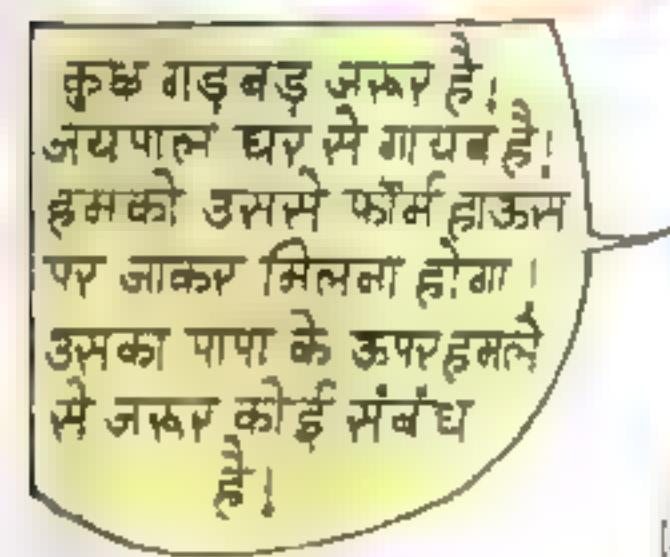 कुछ गड़बड़ जरूर है!
जयपाल घर से गायब है!
हमको उससे फॉर्म हाऊस
पर जाकर मिलना होगा।
उसका पापा के ऊपर हमले
से जरूर कोई संबंध
है!